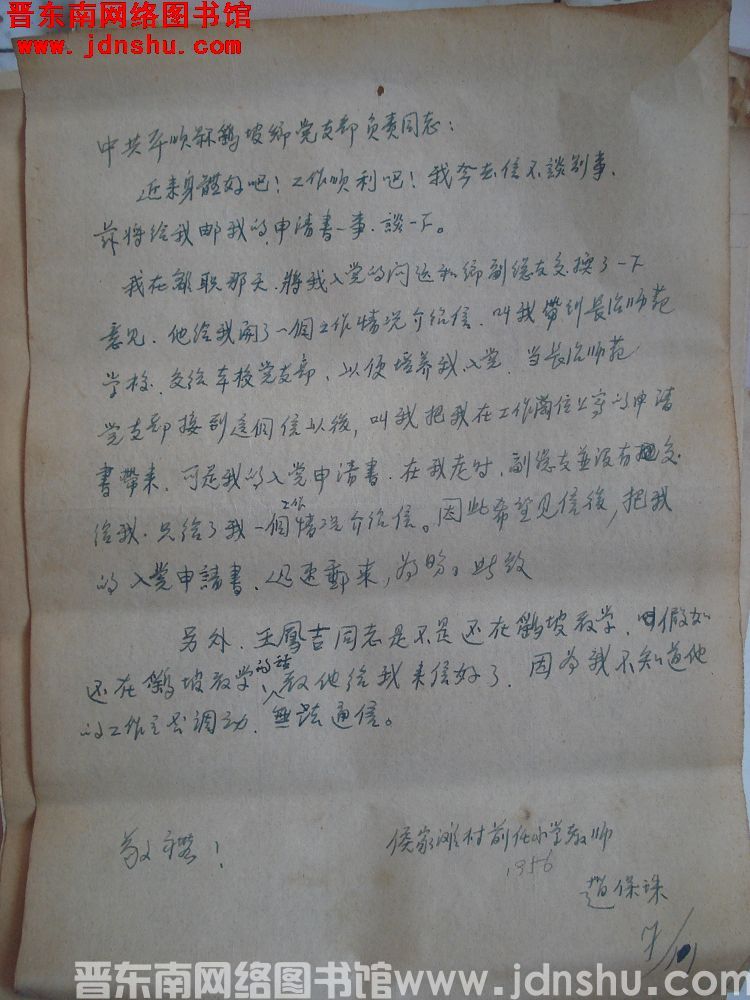 晋东南网络图书馆
www.jdnshu.com
中共平顺縣鵝坡鄉党支部负責同志：
近来身體好吧！工作顺利吧！我今去信不談别事，
茲将给我邮我的申请書一事，談一下。
我在離职那天，將我入党的问题和鄉副總支交換了一下
意见，他给我開了一個工作情况介绍信，叫我帶到長治师范
学校，交给本校党支部，以便培养我入党，当長治师范
党支部接到這個信以後，叫我把我在工作崗位上寫的申请
書帶来，可是我的入党申请書，在我走时，副總支並没有交
给我，只给了我一個工作情况介绍信。因此希望见信後，把我
的入党申請書，迅速郵来，为盼。此致
另外，王鳳吉同志是不是还在鵝坡教学，假如
还在鵝坡教学的話，教他给我来信好了，因为我不知道他
的工作是否調动，無法通信。
敬禮！
侯家滩村前任小学教师
1956
趙保珠
7/10
晋东南网络图书馆www.jdnshu.com